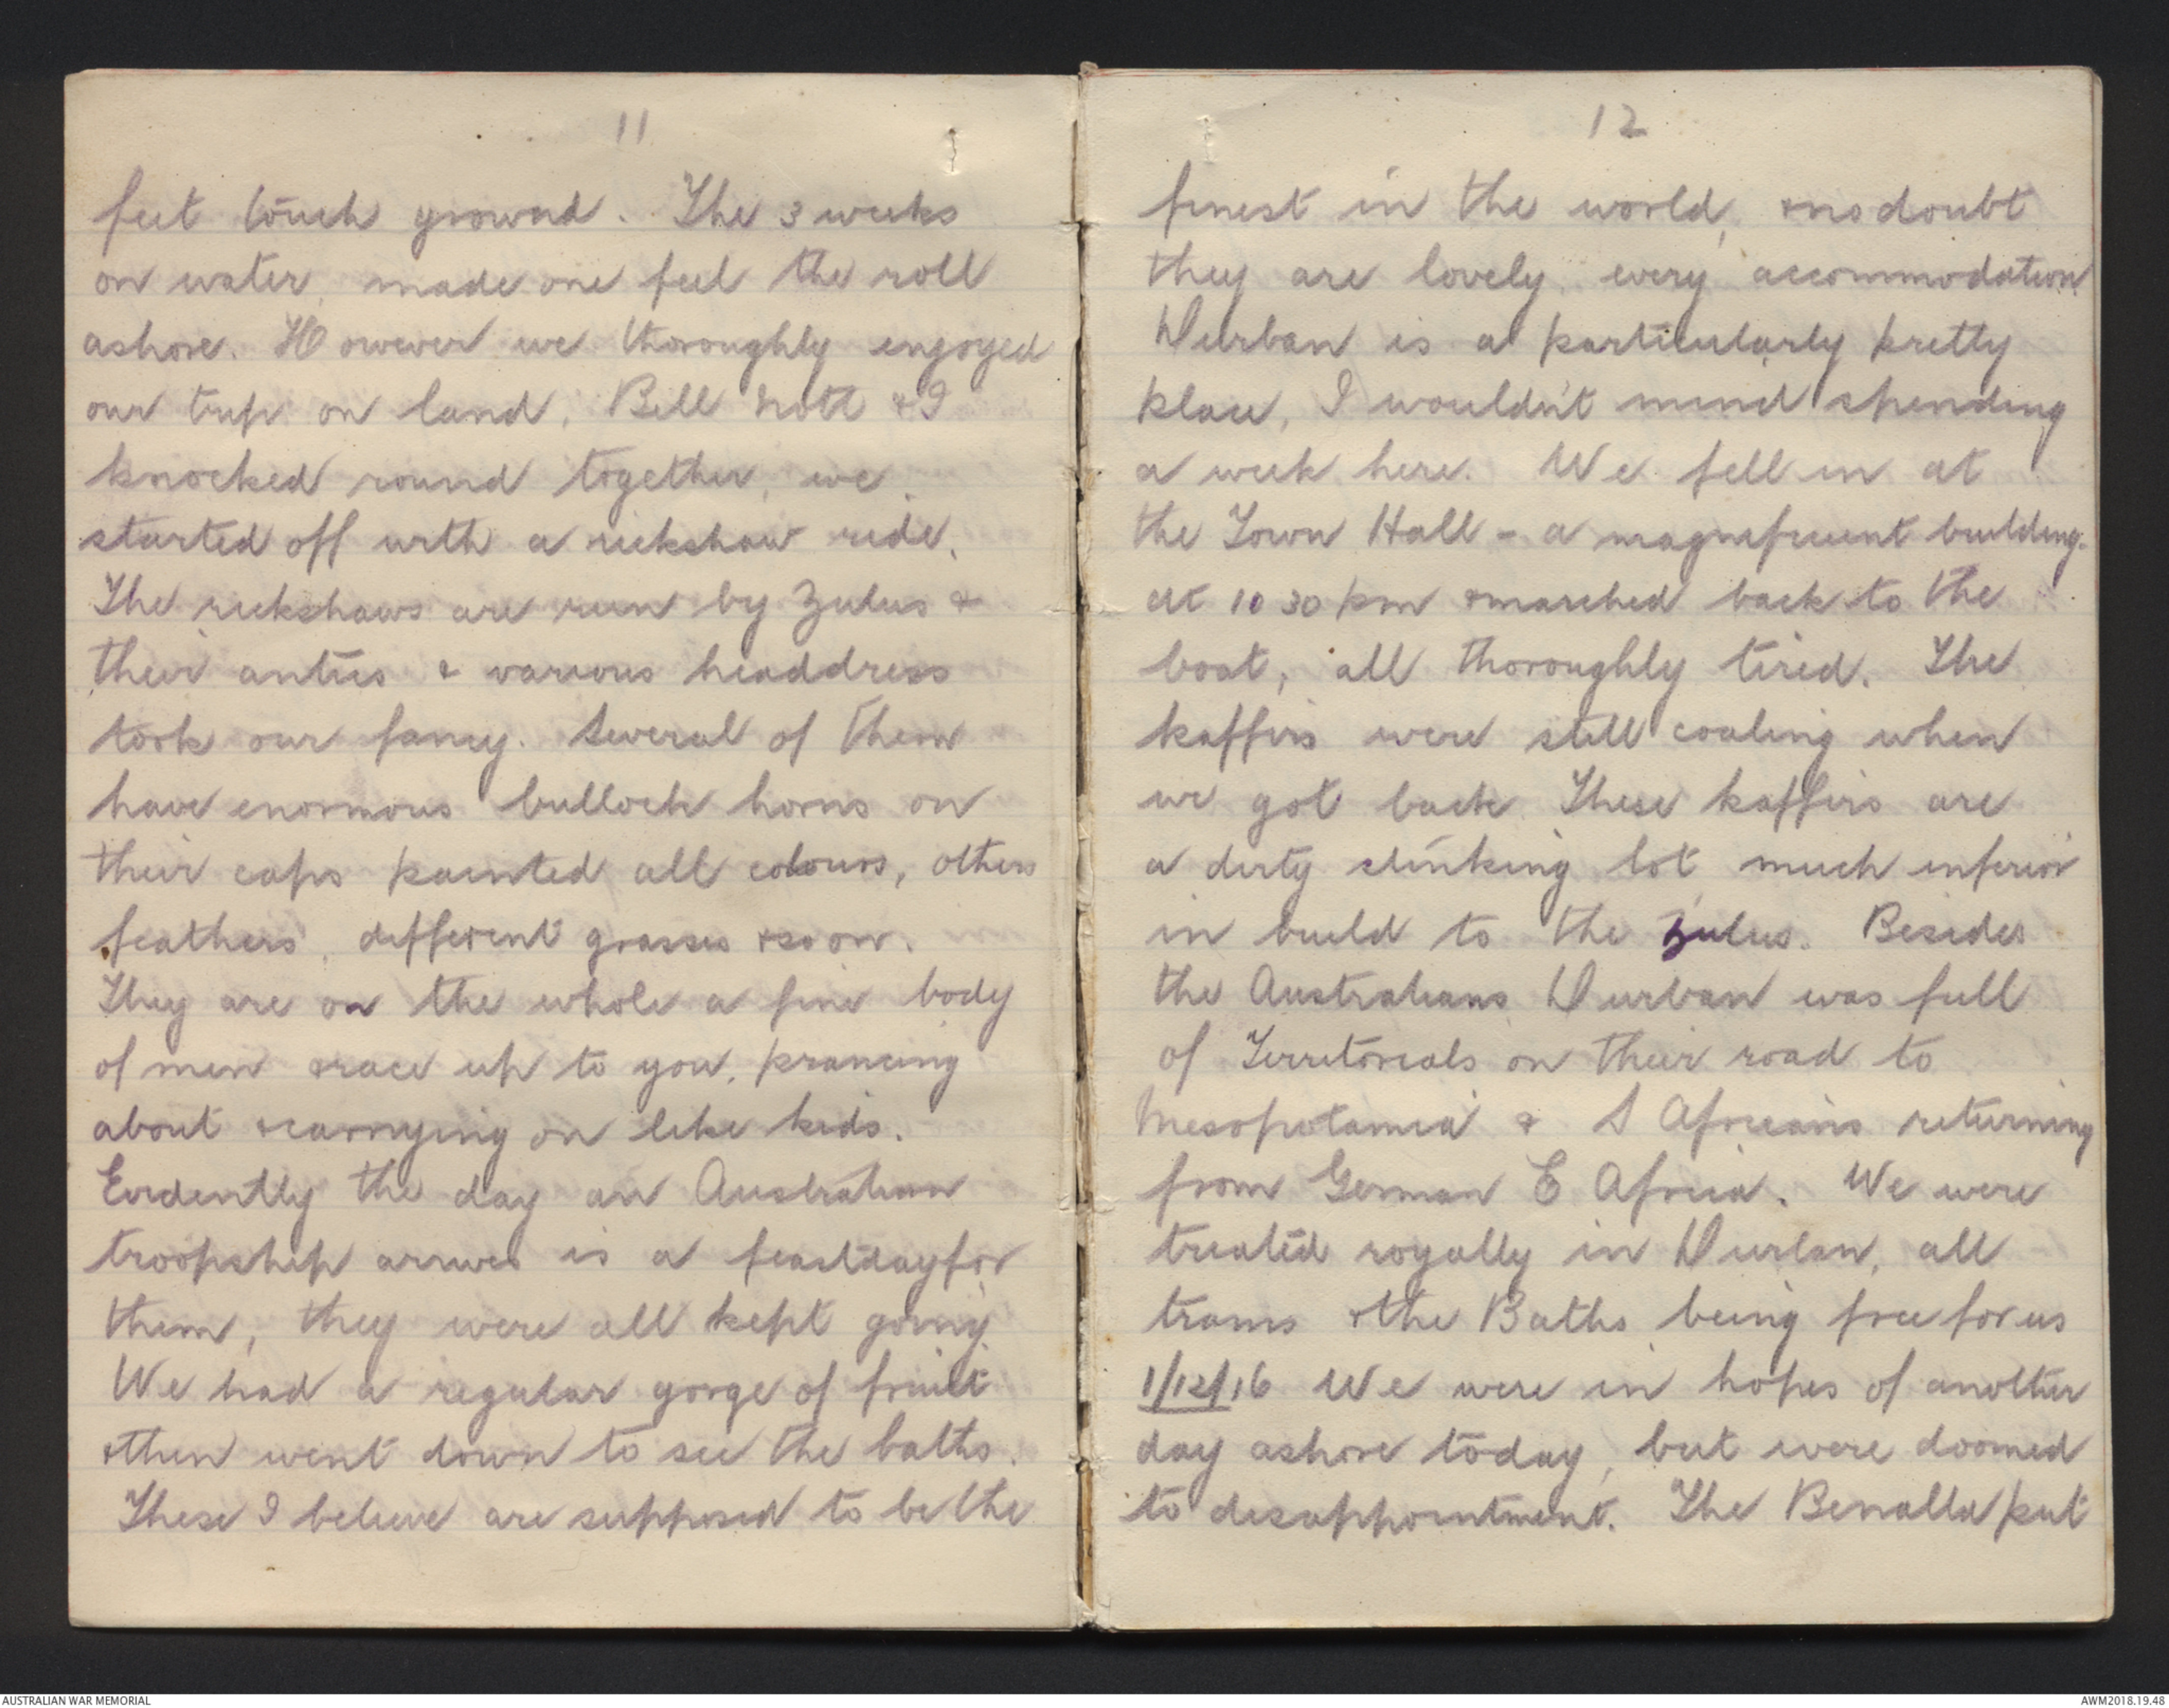 11
feet touch ground. The 3 weeks
on water, made one feel the roll
ashore. However we thoroughly enjoyed
our trip on land, Bill Nott & I
knocked round together, we
started off with a rickshaw ride.
The rickshaws are run by Zulus &
their antics & various headdress
took our fancy. Several of them
have enormous bullock horns on
their caps painted all colours, others
feathers, different grasses & so on.
They are on the whole a fine body
of men & race up to you, prancing
about & carrying on like kids.
Evidently the day an Australian
troopship arrives is a feastday for
them, they were all kept going.
We had a regular gorge of fruit
& then went down to see the baths.
These I believe are supposed to be the
12
finest in the world, & no doubt
they are lovely, every accommodation
Durban is a particularly pretty
place, I wouldn't mind spending
a week here. We fell in at
the Town Hall - a magnificent building.
at 10 30 pm & marched back to the
boat, all thoroughly tired. The
kaffirs were still coaling when
we got back. These kaffirs are
a dirty stinking lot, much inferior
in build to the Zulus. Besides
the Australians, Durban was full
of Territorials on their road to
Mesopotamia & S Africans returning
from German E Africa. We were
treated royally in Durban, all
trams & the Baths being free for us
1/12/16 We were in hopes of another
day ashore today, but were doomed
to disappointment. The Benalla put
AUSTRALIAN WAR MEMORIAL
AWM2018.19.48